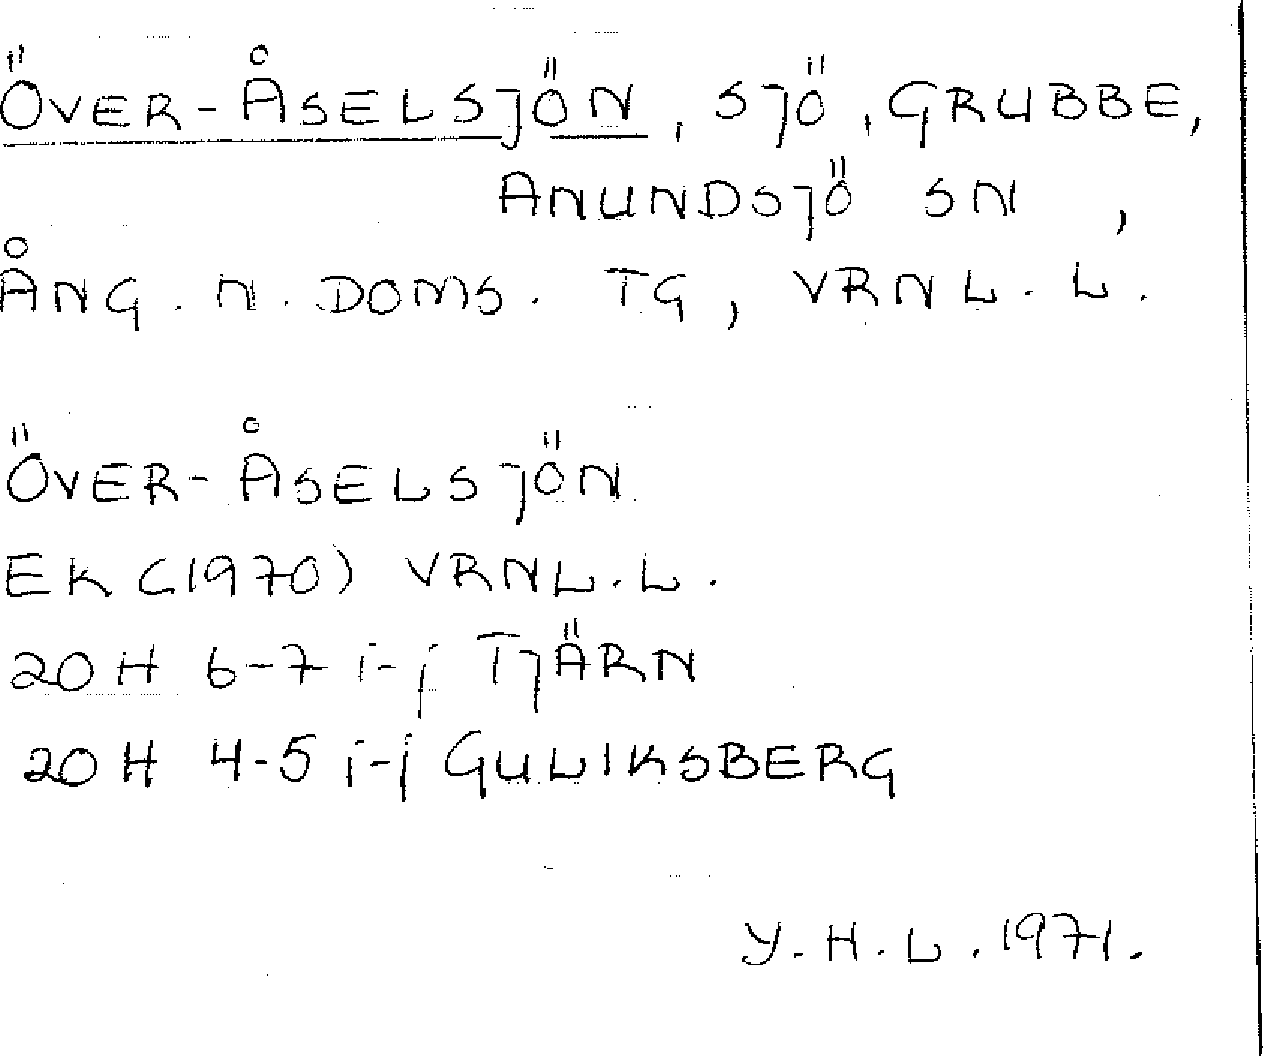 ÖVER-ÅSELSJÖN, SJÖ, GRUBBE,
ANUNDSJÖ SN,
ÅNG. N. DOMS. TG, VRNL.L.
ÖVER-ÅSELSJÖN
EK (1970) VRNL.L.
20 H 6-7 i-j TJÄRN
20 H 4-5 i-j GULIKSBERG
Y.H.L. 1971.